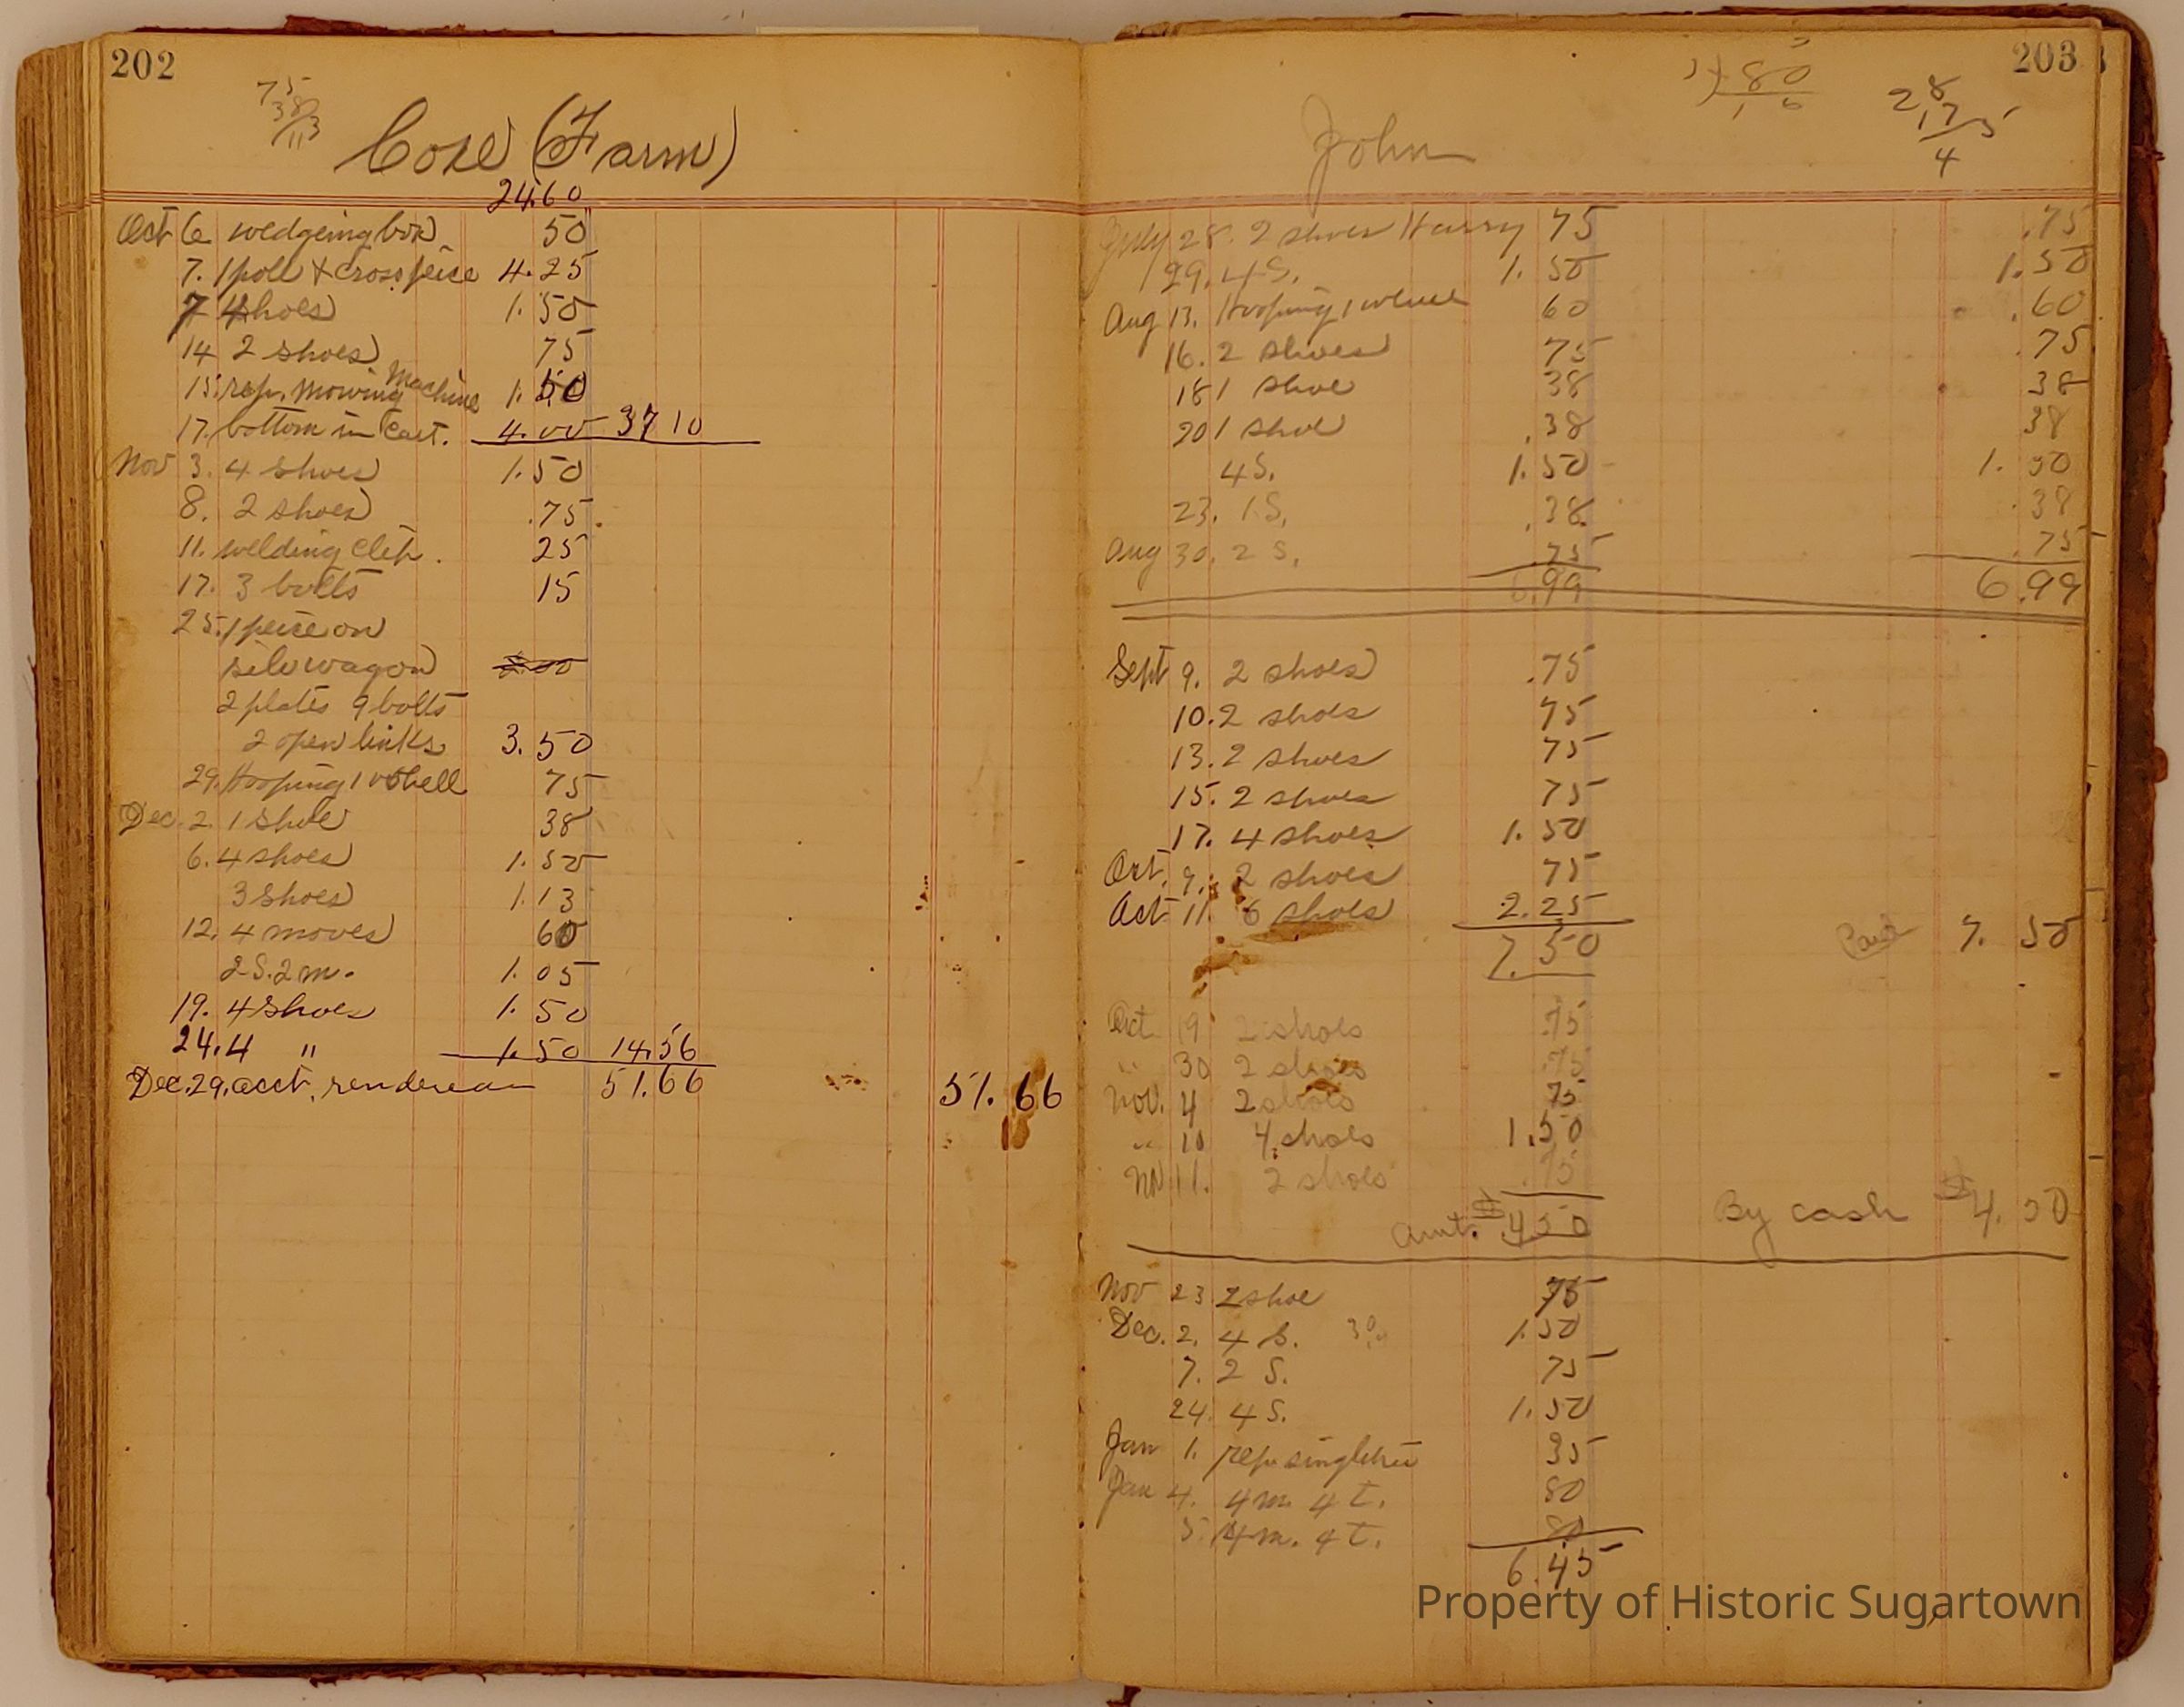 202
75
38
113
Coxe (Farm)
24.60
Oct 6 wedgeing box 50
7. 1 pole + cross peice 4.25
7 4 shoes 1.50
14 2 shoes 75
15. rep. mowing machine 1.50
17. bottom in Cart. 4.00 37 10
Nov 3. 4 shoes 1.50
8. 2 shoes .75.
11. welding Clep. 25
17. 3 bolts 15
25. 1 peice on
silo wagon
2 plates 9 bolts
2 open links 3.50
29. Hooping 1 wheel 75
Dec. 2. 1 shoe 38
6. 4 shoes 1.50
3 shoes 1.13
12. 4 moves 60
2 S. 2 m. 1.05
19. 4 shoes 1.50
24. 4 " 1.50 14.56
Dec. 29. acct. 51.66 51.66
203
80
28
17
4
John
July 28. 2 shoes Harry 75 .75
29. 4 S. 1.50 1.50
Aug 13. Hooping 1 wheel 60 .60
16. 2 shoes 75 .75
18 1 shoe 38 38
20 1 shoe .38 38
4 S. 1.50 1.50
23. 1 S. .38 .38
Aug 30. 2 S. .75 .75
6.99 6.99
Sept 9. 2 shoes .75
10. 2 shoes 75
13. 2 shoes 75
15. 2 shoes 75
17. 4 shoes 1.50
Oct. 9. 2 shoes 75
Oct 11. 6 shoes 2.25
7.50 Paid 7.50
Oct 19 2 shoes .75
" 30 2 shoes .75
Nov. 4 2 shoes 75
" 10 4 shoes 1.50
Nov 11. 2 shoes .75
Amt. $4.50 By cash $4.50
Nov 23. 2 shoe 75
Dec. 2. 4 S. 1.50
7. 2 S. 75
24. 4 S. 1.50
Jan 1. rep. singletree 35
Jan 4. 4 m. 4 t. 80
5. 4 m. 4 t. 80
6.45
Property of Historic Sugartown